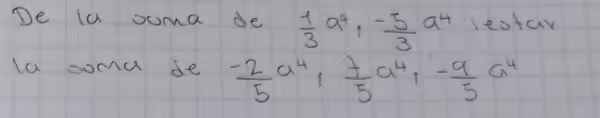 De la suma de 1/3 a⁴, -5/3 a⁴ restar
la soma de -2/5 a⁴, 7/5 a⁴, -9/5 a⁴